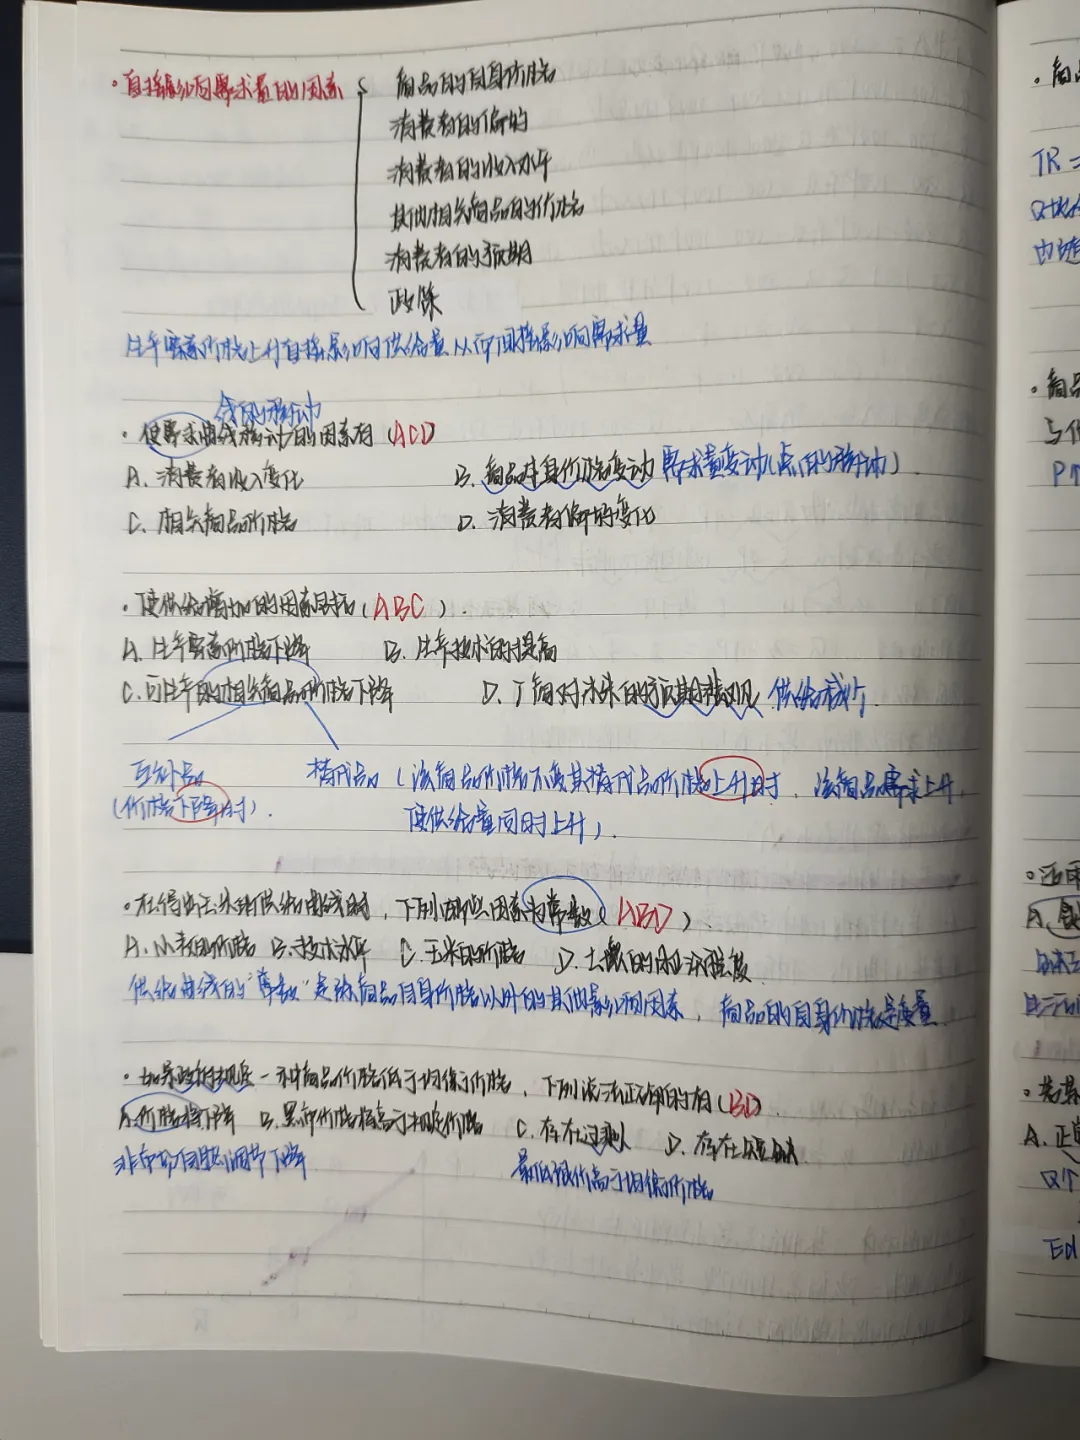 · 直接影响需求量的因素
商品的自身价格
消费者的偏好
消费者的收入水平
其他相关商品的价格
消费者的预期
政策
生产要素价格上升直接影响供给量从而间接影响需求量
线的移动
· 使需求曲线移动的因素有(ACD)
A. 消费者收入变化 B. 商品本身价格变动 需求量变动(点的移动).
C. 相关商品价格 D. 消费者偏好变化
· 使供给增加的因素包括(ABC).
A. 生产要素价格下降 B. 生产技术的提高
C. 可生产的相关商品价格下降 D. 厂商对未来的预期悲观 供给减少.
互补品 替代品(该商品价格不变其替代品价格上升时, 该商品需求上升,
(价格下降时). 使供给量同时上升).
· 在得出玉米的供给曲线时, 下列哪些因素为常数(ABD).
A. 小麦的价格 B. 技术水平 C. 玉米的价格 D. 土壤的
供给曲线的"常数"是除商品自身价格以外的其他影响因素, 商品的自身价格是变量
· 如果政府规定一种商品价格低于均衡价格, 下列说法正确的有(BD).
A. 价格将下降 B. 黑市价格将高于规定价格 C. 存在过剩 D. 存在短缺
非市场自然调节下降 最低限价高于均衡价格
· 商品
TR =
由
· 商品
与
P↑
A.
A. 正
Ed